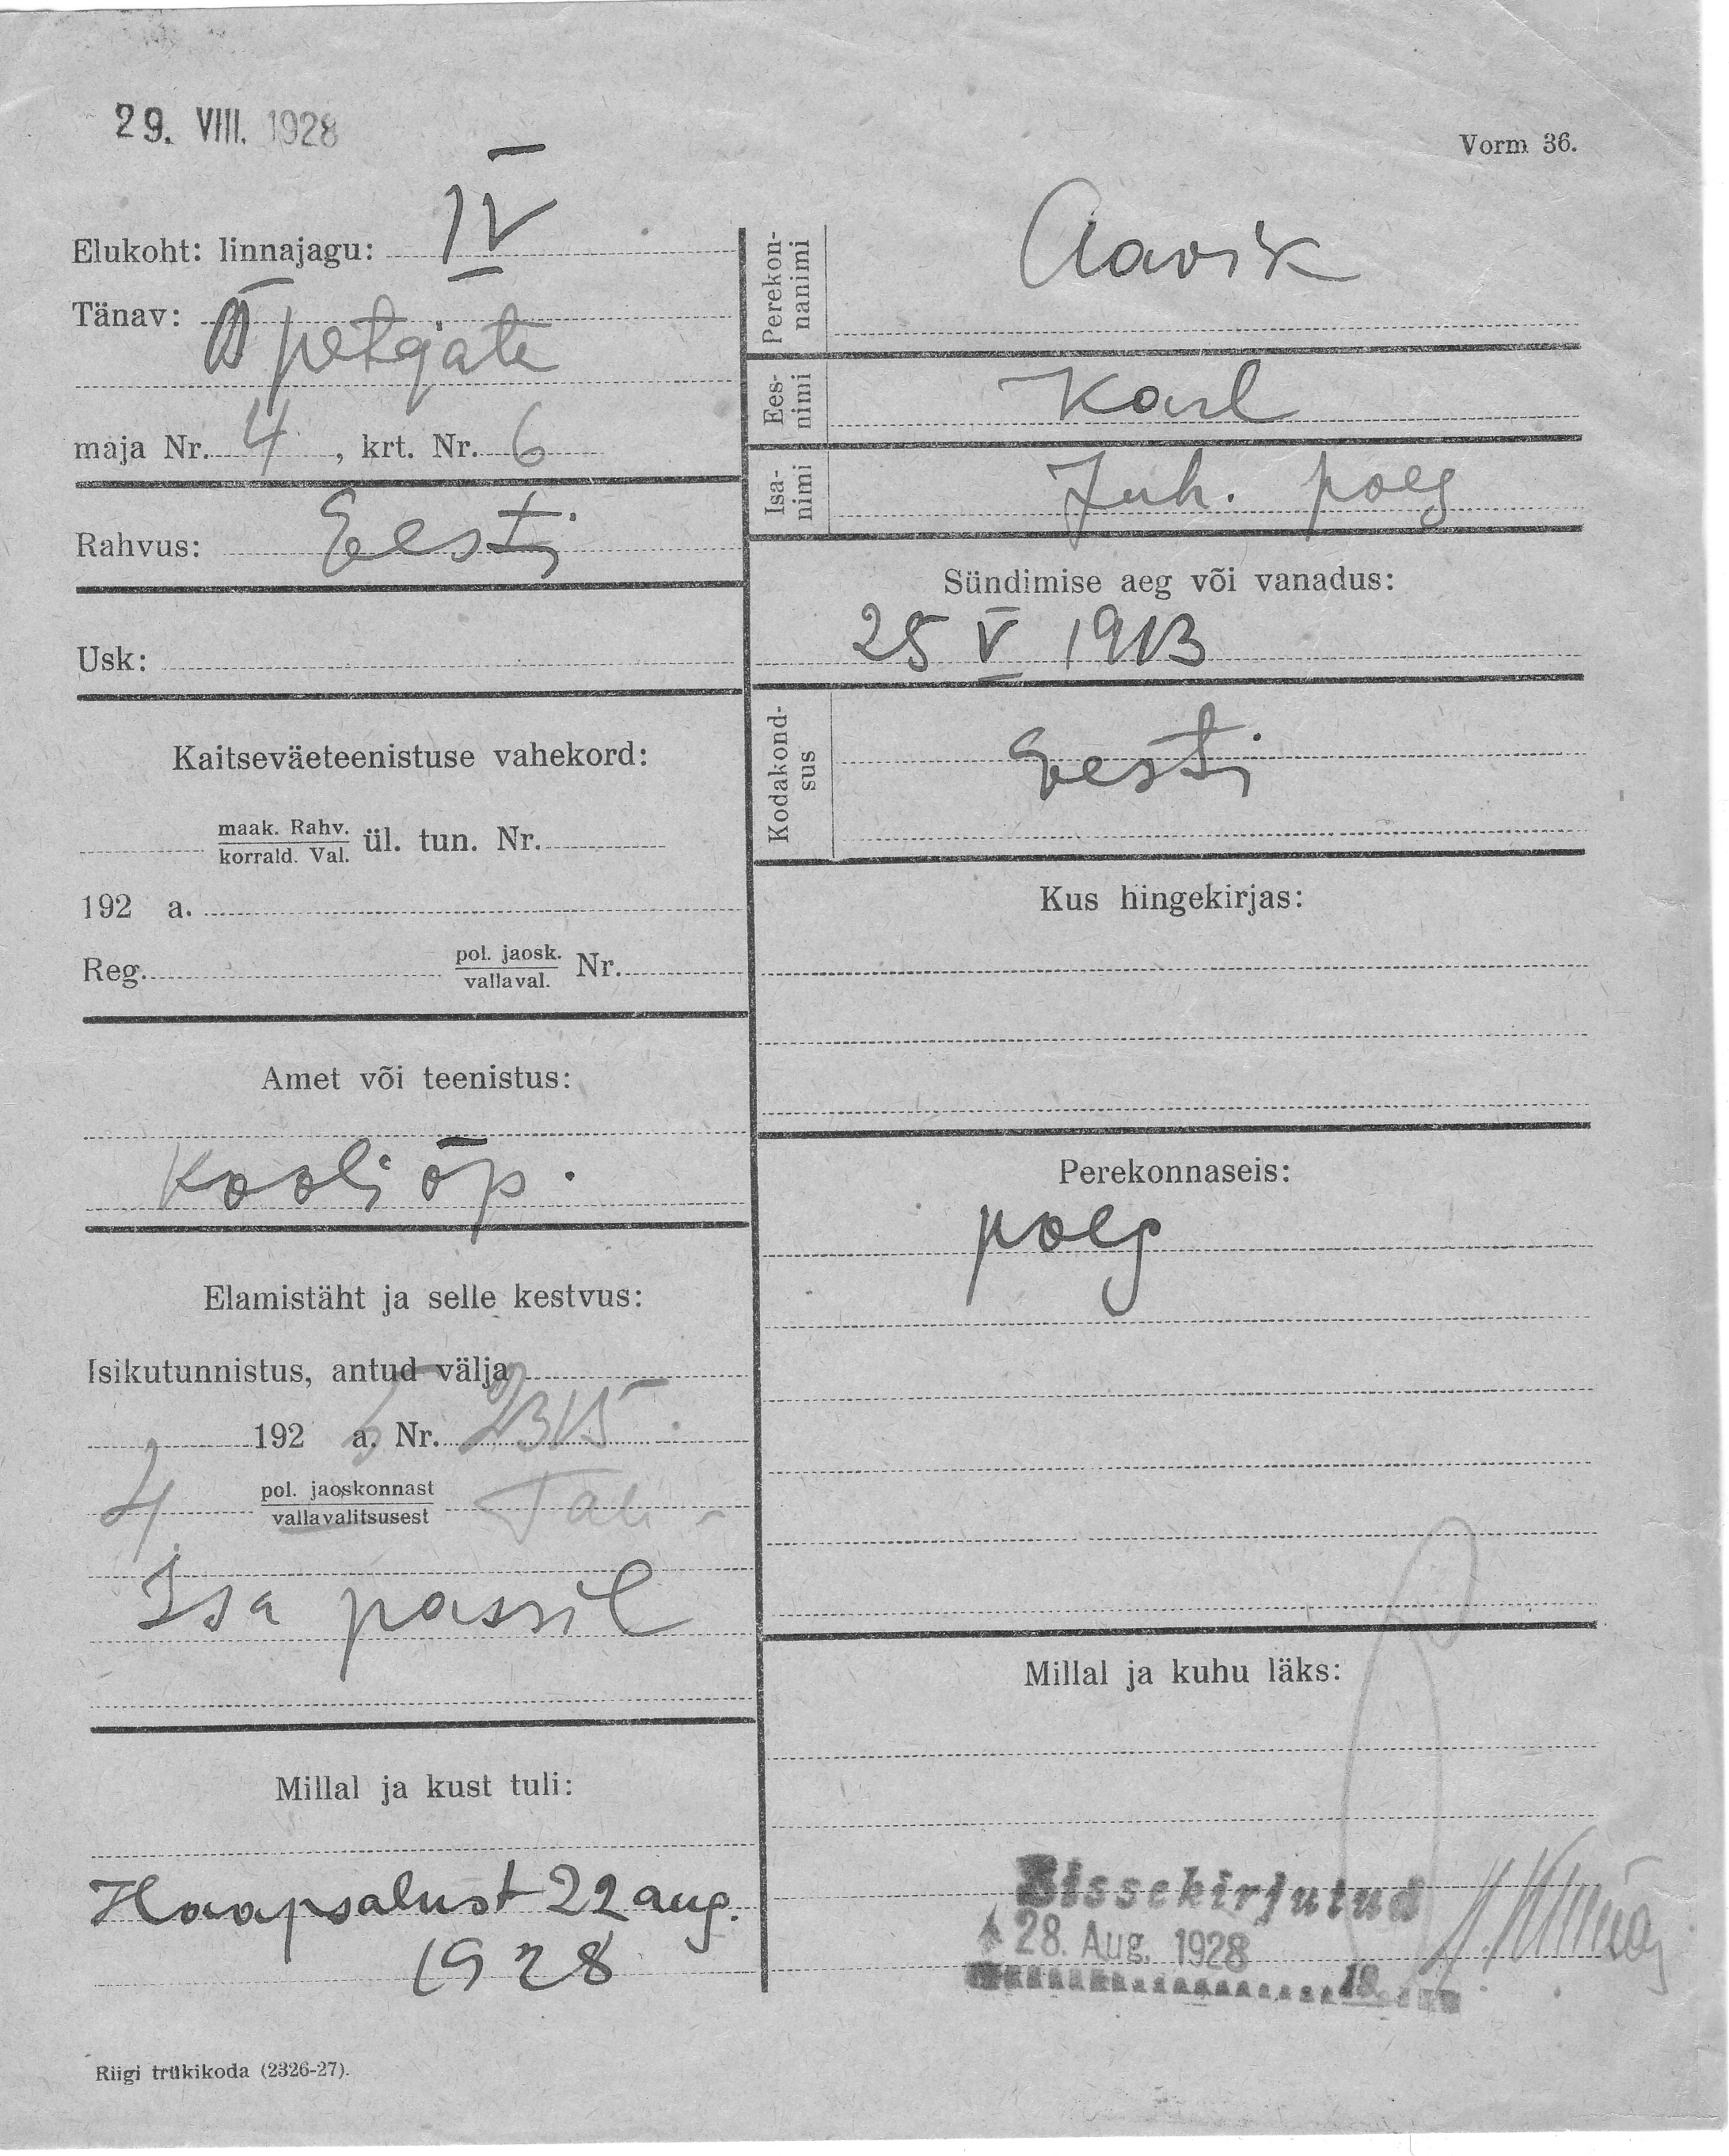 29. VIII. 1928
Vorm 36.
Elukoht: linnajagu: IV
Tänav: Õpetajate
maja Nr. 4, krt. Nr. 6
Rahvus: Eesti
Usk:
Kaitseväeteenistuse vahekord:
maak. Rahv.
korrald. Val. ül. tun. Nr.
192 a.
Reg. pol. jaosk.
vallaval. Nr.
Amet või teenistus:
Kooliõp.
Elamistäht ja selle kestvus:
Isikutunnistus, antud välja
192 5 a. Nr. 2315
4. pol. jaoskonnast
vallavalitsusest
Isa passil
Millal ja kust tuli:
Haapsalust 22 aug.
1928
Riigi trükikoda (2326-27).
Perekon-
nanimi Aavik
Ees-
nimi Karl
Isa-
nimi Juh. poeg
Sündimise aeg või vanadus:
25 V 1913
Kodakond-
sus Eesti
Kus hingekirjas:
Perekonnaseis:
poeg
Millal ja kuhu läks:
Sissekirjutud
28. Aug. 1928
19